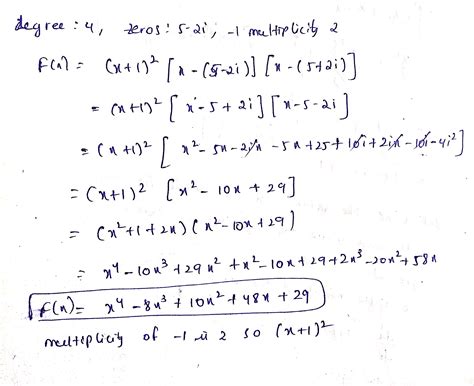 degree : 4, zeros : 5-2i, -1 multiplicity 2
F(x) = (x+1)² [x - (5-2i)] [x - (5+2i)]
= (x+1)² [x-5+2i] [x-5-2i]
= (x+1)² [x² - 5x - 2ix - 5x + 25 + 10i + 2ix - 10i - 4i²]
= (x+1)² [x² - 10x + 29]
= (x²+1+2x) (x² - 10x + 29)
= x⁴ - 10x³ + 29x² + x² - 10x + 29 + 2x³ - 20x² + 58x
f(x) = x⁴ - 8x³ + 10x² + 48x + 29
multiplicity of -1 is 2 so (x+1)²